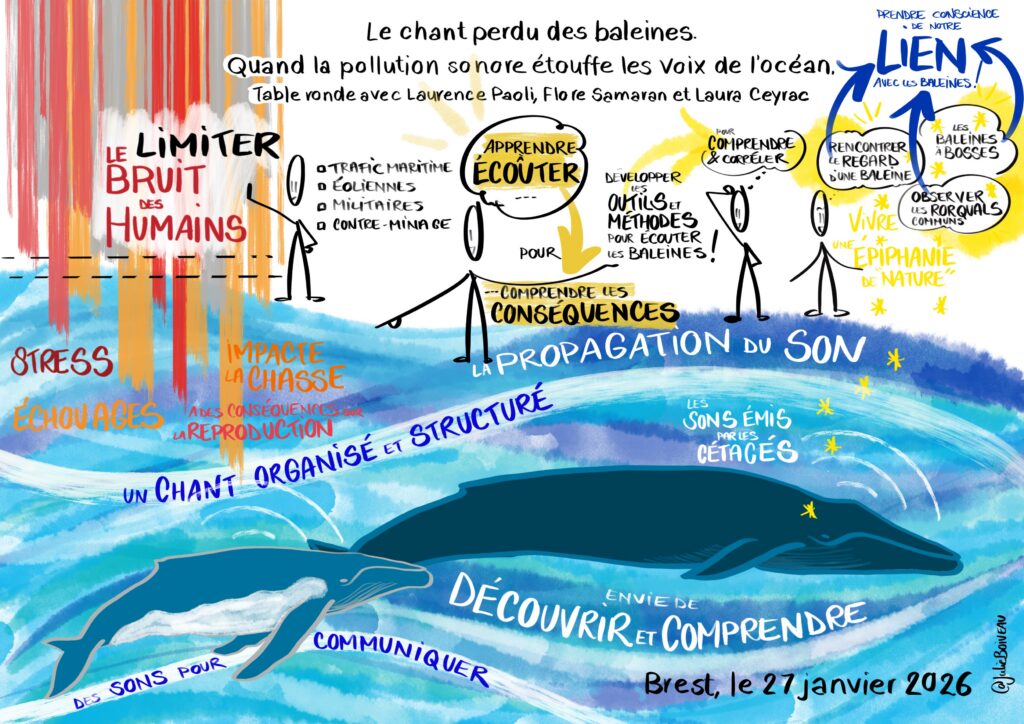 Le chant perdu des baleines.
Quand la pollution sonore étouffe les voix de l'océan.
Table ronde avec Laurence Paoli, Flore Samaran et Laura Ceyrac
PRENDRE CONSCIENCE
DE NOTRE
LIEN
AVEC LES BALEINES !
LIMITER
LE
BRUIT
DES
HUMAINS
TRAFIC MARITIME
ÉOLIENNES
MILITAIRES
CONTRE-MINAGE
APPRENDRE
ÉCOÛTER
POUR
COMPRENDRE LES
CONSÉQUENCES
DÉVELOPPER
LES
OUTILS ET
MÉTHODES
POUR ÉCOUTER
LES BALEINES !
POUR
COMPRENDRE
RENCONTRER
LE REGARD
D'UNE BALEINE
LES
BALEINES
À BOSSES
OBSERVER
LES RORQUALS
COMMUNS
VIVRE
UNE "ÉPIPHANIE
DE NATURE"
STRESS
IMPACTE
LA CHASSE
ÉCHOUAGES
A DES CONSÉQUENCES SUR
LA REPRODUCTION
LA PROPAGATION DU SON
UN CHANT ORGANISÉ ET STRUCTURÉ
LES
SONS ÉMIS
PAR LES
CÉTACÉS
ENVIE DE
DÉCOUVRIR ET COMPRENDRE
DES SONS POUR COMMUNIQUER
Brest, le 27 janvier 2026
@Julie Boiveau